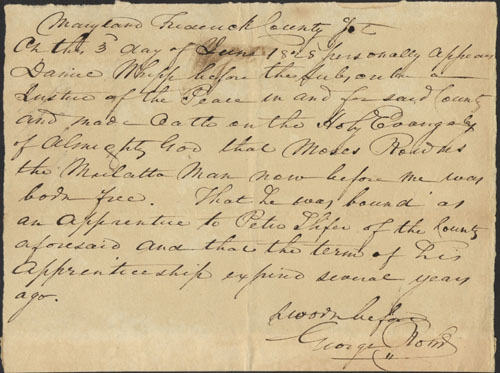 Maryland Frederick County Sct
On the 3d day of June 1825 personally appears
Daniel Whipp before the subscriber a
Justice of the Peace in and for said County
and made Oath on the Holy Evangely
of Almighty God that Moses
the Mulatta Man now before me was
born free. That he was bound as
an apprentice to Peter of the County
aforesaid and that the term of his
Apprenticeship expired several years
ago.
Sworn before
George